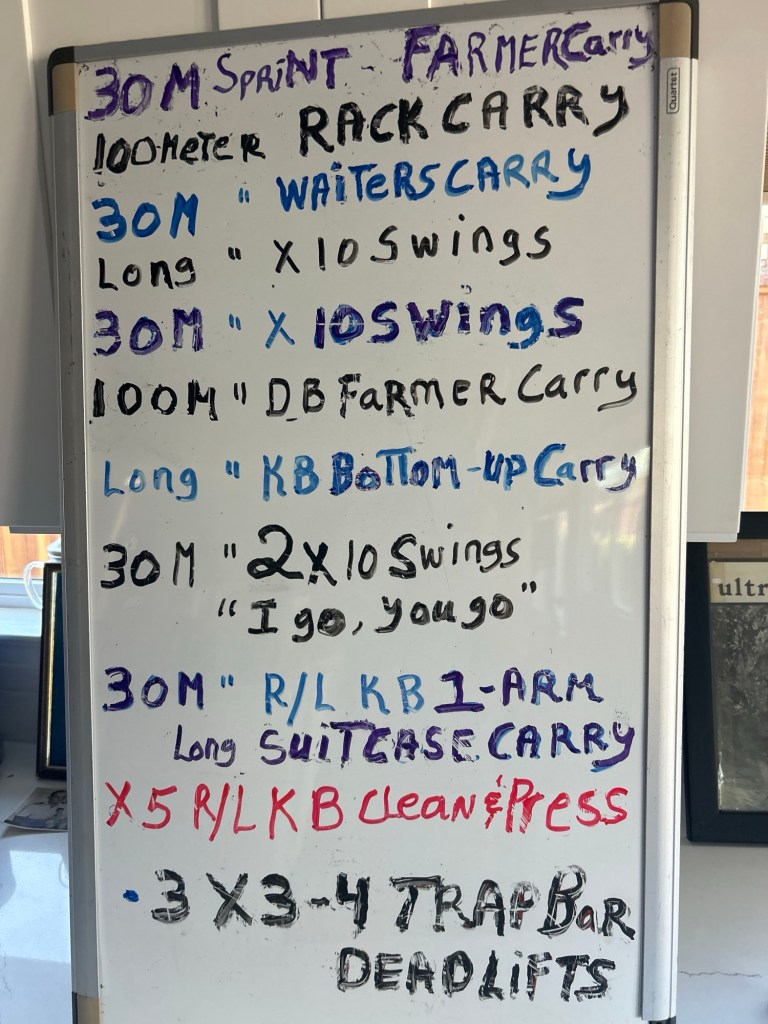 30M SPRiNT - FARMERCarry
Quartet
100METER RACK CARRY
30M " WAiTERSCARRY
Long " X 10 Swings
30M " X 10 Swings
100M " DB FaRMER Carry
Long " KB BOTTOM-UP Carry
30M " 2X10 Swings
"I go, you go"
ultr
30M " R/L KB 1-ARM
Long SUiTCASE CARRY
X5 R/L KB Clean & Press
• 3 X 3-4 TRAP BaR
DEADLiFTS